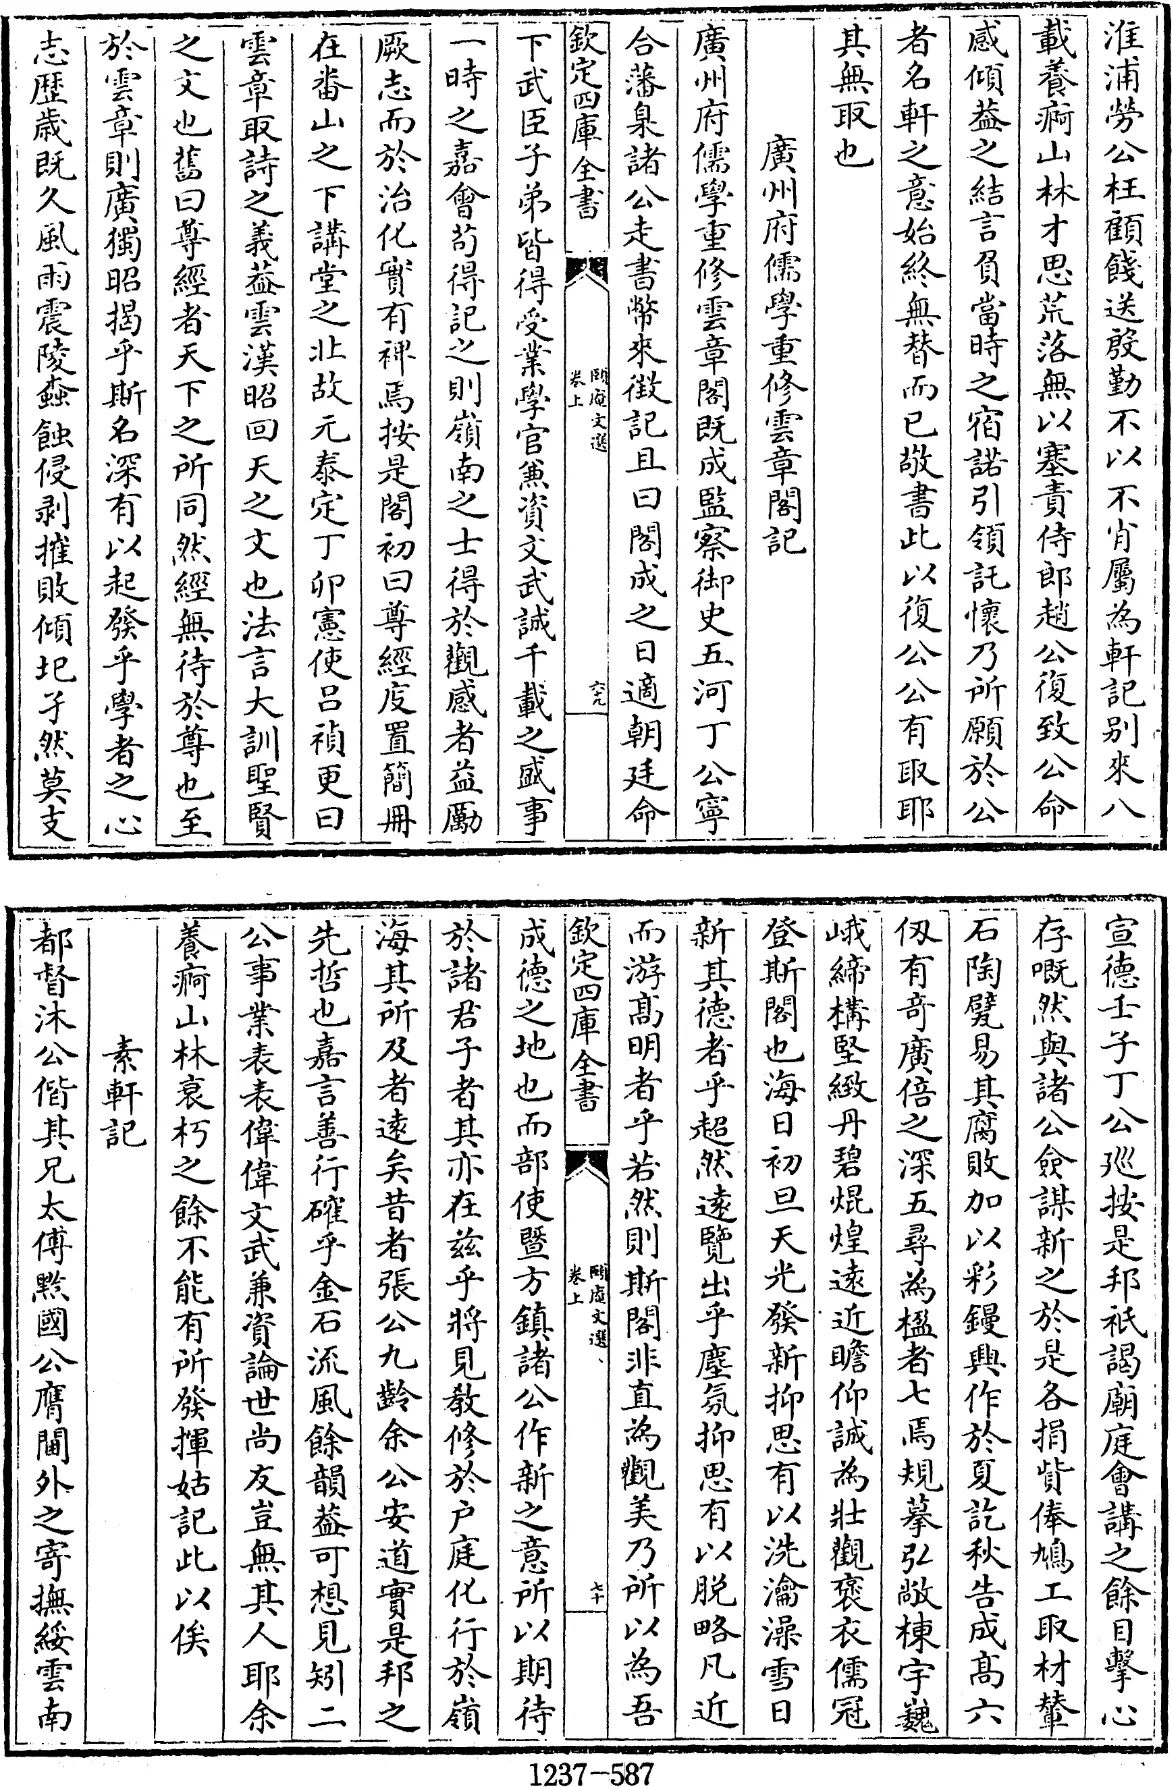 淮浦勞公枉顧餞送殷勤不以不肖屬為軒記别來八
載養痾山林才思荒落無以塞責侍郎趙公復致公命
感傾葢之結言負當時之宿諾引領託懷乃所願於公
者名軒之意始終無替而已敬書此以復公公有取耶
其無取也
廣州府儒學重修雲章閣記
廣州府儒學重修雲章閣既成監察御史五河丁公寧
合藩臬諸公走書幣來徵記且曰閣成之日適朝廷命
欽定四庫全書
頤庵文選
卷上
六十九
下武臣子弟皆得受業學官兼資文武誠千載之盛事
一時之嘉會苟得記之則嶺南之士得於觀感者益勵
厥志而於治化實有裨焉按是閣初曰尊經庋置簡冊
在畨山之下講堂之北故元泰定丁卯憲使吕禎更曰
雲章取詩之義葢雲漢昭回天之文也法言大訓聖賢
之文也舊曰尊經者天下之所同然經無待於尊也至
於雲章則廣獨昭揭乎斯名深有以起發乎學者之心
志歷歲既久風雨震陵蟲蝕侵剥摧敗傾圯孑然莫支
宣德壬子丁公廵按是邦祇謁廟庭會講之餘目擊心
存嘅然與諸公僉謀新之於是各捐貲俸鳩工取材輦
石陶甓易其腐敗加以彩鏝興作於夏訖秋告成髙六
仭有奇廣倍之深五尋為楹者七焉規摹弘敞棟宇巍
峨締構堅緻丹碧焜煌遠近瞻仰誠為壯觀褒衣儒冠
登斯閣也海日初旦天光發新抑思有以洗瀹澡雪日
新其德者乎超然遠覽出乎塵氛抑思有以脱略凡近
而游髙明者乎若然則斯閣非直為觀美乃所以為吾
欽定四庫全書
頤庵文選
卷上
七十
成德之地也而部使暨方鎮諸公作新之意所以期待
於諸君子者其亦在兹乎將見教修於户庭化行於嶺
海其所及者遠矣昔者張公九齡余公安道實是邦之
先哲也嘉言善行確乎金石流風餘韻葢可想見矧二
公事業表表偉偉文武兼資論世尚友豈無其人耶余
養痾山林衰朽之餘不能有所發揮姑記此以俟
素軒記
都督沐公偕其兄太傅黔國公膺閫外之寄撫綏雲南
1237-587